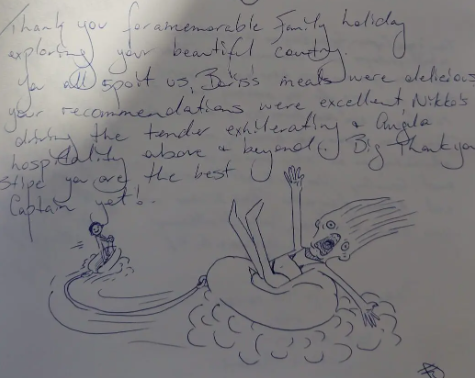 Thank you for a memorable family holiday
exploring your beautiful country.
You all spoilt us, Boris's meals were delicious
your recommendations were excellent, Nikko's
driving the tender exhilerating & Angela
hospitality above & beyond. Big Thankyou
Stipe you are the best
Captain yet!